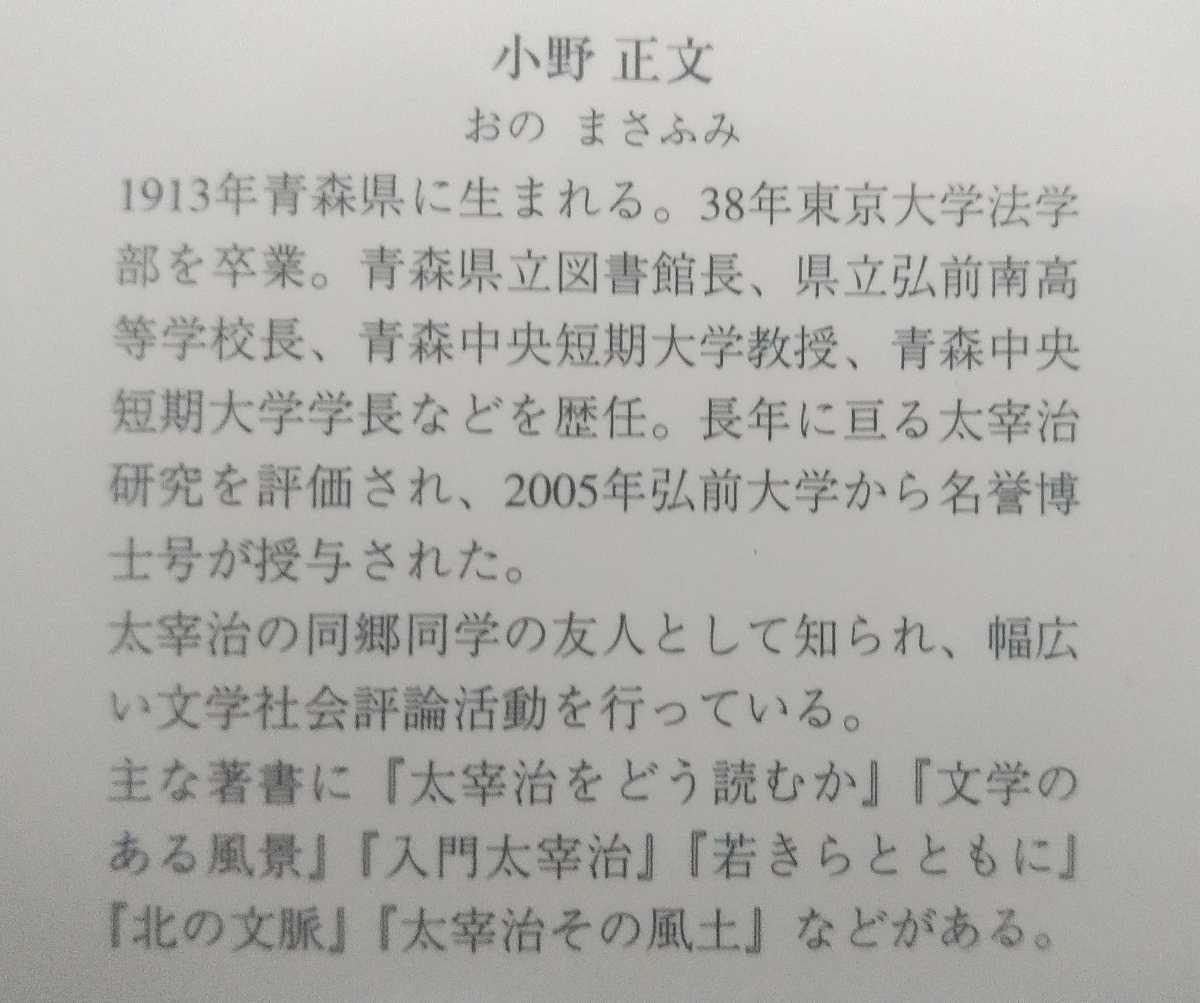 小野 正文
おの まさふみ
1913年青森県に生まれる。38年東京大学法学
部を卒業。青森県立図書館長、県立弘前南高
等学校長、青森中央短期大学教授、青森中央
短期大学学長などを歴任。長年に亘る太宰治
研究を評価され、2005年弘前大学から名誉博
士号が授与された。
太宰治の同郷同学の友人として知られ、幅広
い文学社会評論活動を行っている。
主な著書に『太宰治をどう読むか』『文学の
ある風景』『入門太宰治』『若きらとともに』
『北の文脈』『太宰治その風土』などがある。